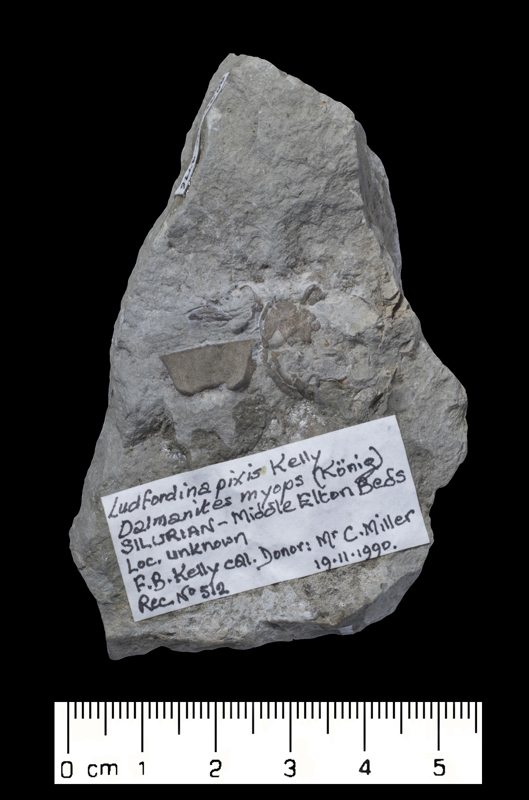 Ludfordina pixis Kelly
Dalmanites myops (König)
SILURIAN - Middle Elton Beds
Loc. unknown
F.B. Kelly col. Donor: Mr C. Miller
Rec. No 512 19.11.1990.
0 cm 1 2 3 4 5